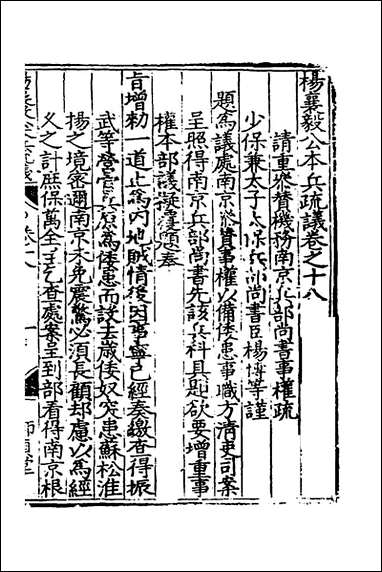 楊襄毅公本兵疏議卷之十八
請重參贊機務南京兵部尚書事權疏
少保兼太子太保兵部尚書臣楊博等謹
題為議處南京參贊事權以備倭患事職方清吏司案
呈照得南京兵部尚書先該兵科具題欲要增重事
權本部議擬覆題奏
旨增勑一道止為內地賊情後因事寧已經奏繳查得振
武等營官兵原為倭患而設去歲倭奴突患蘇松淮
揚之境密邇南京未免震驚必須長顧却慮以為經
久之計庶保萬全乞查處案呈到部看得南京根